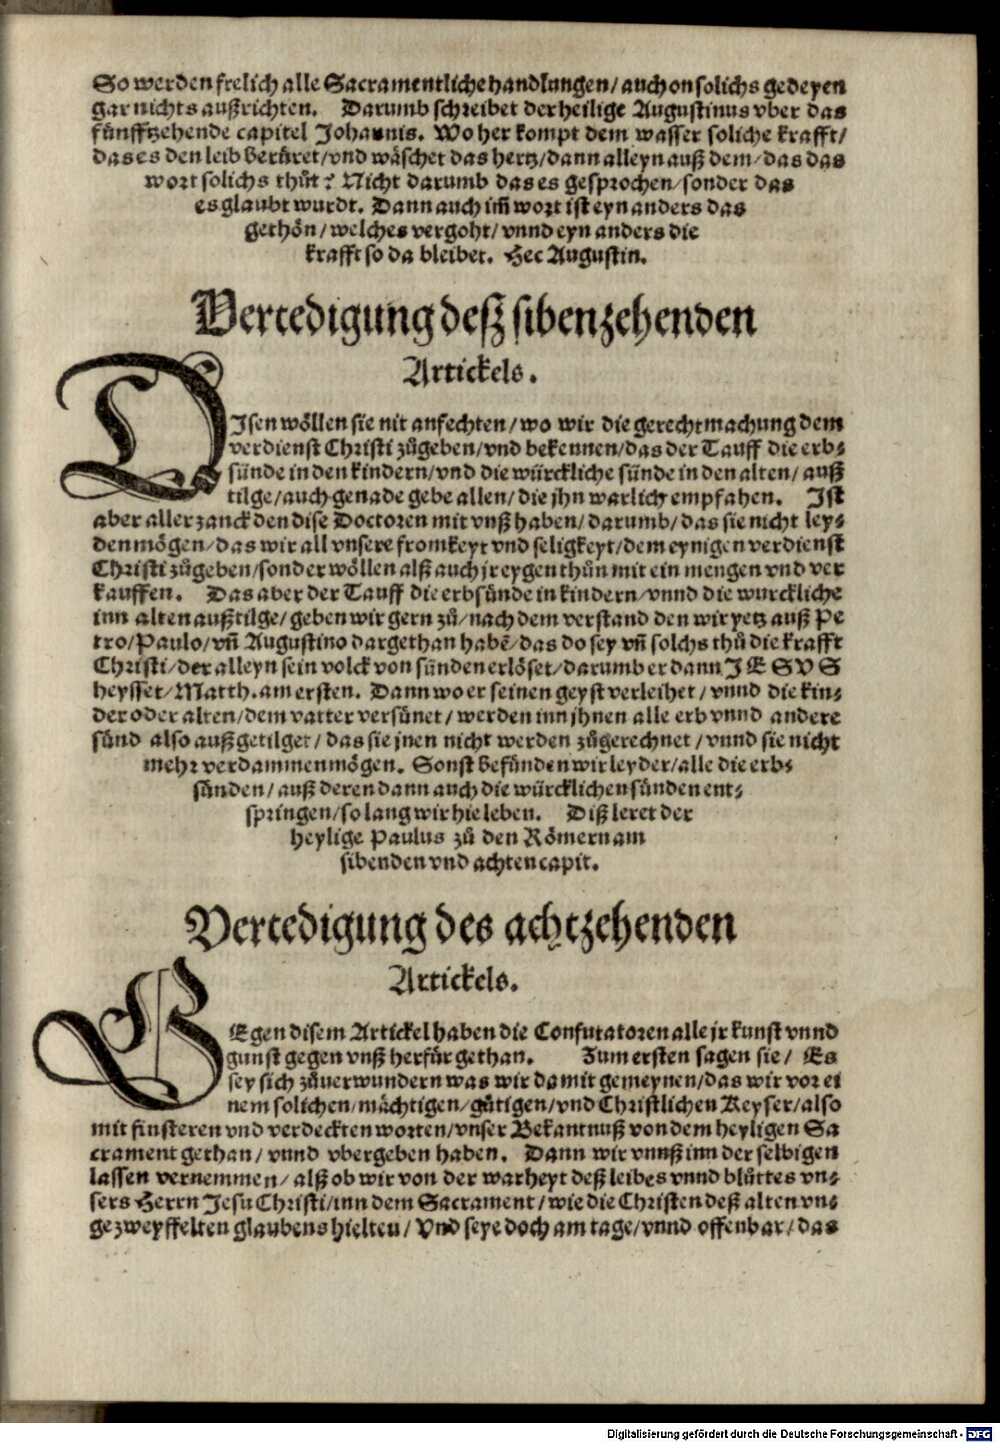 So werden frelich alle Sacramentliche handlungen / auch on solichs gedeyen
gar nichts außrichten. Darumb schreibet der heilige Augustinus vber das
fünfftzehende capitel Johannis. Wo her kompt dem wasser soliche krafft /
das es den leib berüret / vnd wäschet das hertz / dann alleyn auß dem / das das
wort solichs thůt? Nicht darumb das es gesprochen / sonder das
es glaubt wurdt. Dann auch im̃ wort ist eyn anders das
gethön / welches vergoht / vnnd eyn anders die
krafft so da bleibet. Hec Augustin.
Vertedigung deß sibenzehenden
Artickels.
DIsen wöllen sie nit anfechten / wo wir die gerechtmachung dem
verdienst Christi zůgeben / vnd bekennen / das der Tauff die erb-
sünde in den kindern / vnd die würckliche sünde in den alten / auß
tilge / auch genade gebe allen / die jhn warlich empfahen. Ist
aber aller zanck den dise Doctoren mit vnß haben / darumb / das sie nicht ley-
den mögen / das wir all vnsere fromkeyt vnd seligkeyt / dem eynigen verdienst
Christi zůgeben / sonder wöllen alß auch jr eygen thůn mit ein mengen vnd ver
kauffen. Das aber der Tauff die erbsünde in kindern / vnnd die wurckliche
inn alten außtilge / geben wir gern zů / nach dem verstand den wir yetz auß Pe
tro / Paulo / vñ Augustino dargethan habẽ / das do sey vñ solchs thů die krafft
Christi / der alleyn sein volck von sünden erlöset / darumb er dann JESVS
heysset / Matth. am ersten. Dann wo er seinen geyst verleihet / vnnd die kin-
der oder alten / dem vatter versünet / werden inn jhnen alle erb vnnd andere
sünd also außgetilget / das sie jnen nicht werden zůgerechnet / vnnd sie nicht
mehr verdammen mögen. Sonst befünden wir leyder / alle die erb-
sünden / auß deren dann auch die würcklichen sünden ent-
springen / so lang wir hie leben. Diß leret der
heylige Paulus zů den Römern am
sibenden vnd achten capit.
Vertedigung des achtzehenden
Artickels.
GEgen disem Artickel haben die Confutatoren alle jr kunst vnnd
gunst gegen vnß herfür gethan. Zum ersten sagen sie / Es
sey sich zůuerwundern was wir damit gemeynen / das wir vor ei
nem solichen / mächtigen / gütigen / vnd Christlichen Keyser / also
mit finsteren vnd verdeckten worten / vnser Bekantnuß von dem heyligen Sa
crament gethan / vnnd vbergeben haben. Dann wir vnnß inn der selbigen
lassen vernemmen / alß ob wir von der warheyt deß leibes vnnd blůttes vn-
sers Herrn Jesu Christi / inn dem Sacrament / wie die Christen deß alten vn-
gezweyffelten glaubens hielten / Vnd seye doch am tage / vnnd offenbar / das
Digitalisierung gefördert durch die Deutsche Forschungsgemeinschaft - DFG